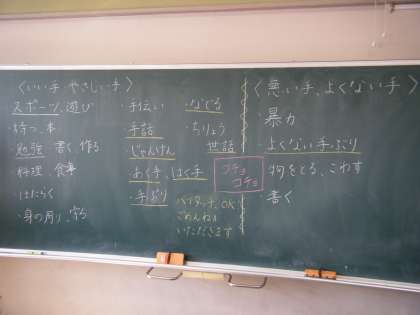 〈いい手、やさしい手〉
スポーツ、遊び
持つ、本
勉強 書く 作る
料理、食事
・はたらく
・身の周り、守る
・手伝い
・手話
・じゃんけん
・あく手、はく手
・手ぶり
・なでる
・ちりょう
世話
コチョ
コチョ
ハイタッチ、OK
ごめんね
いただきます
〈悪い手、よくない手〉
・暴力
・よくない手ぶり
・物をとる、こわす
・書く